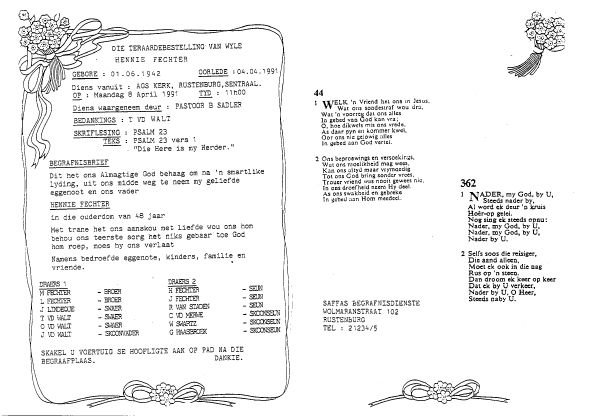 DIE TERAARDEBESTELLING VAN WYLE
HENNIE FECHTER
GEBORE : 01.06.1942 OORLEDE :04.04.1991
Diens vanuit : AGS KERK, RUSTENBURG,SENTRAAL.
OP : Maandag 8 April 1991 TYD : 11h00
Diens waargeneem deur : PASTOOR B SADLER
BEDANKINGS : T VD WALT
SKRIFLESING : PSALM 23
TEKS : PSALM 23 vers 1
"Die Here is my Herder."
BEGRAFNISBRIEF
Dit het ons Almagtige God behaag om na 'n smartlike
lyding, uit ons midde weg te neem my geliefde
eggenoot en ons vader
HENNIE FECHTER
in die ouderdom van 48 jaar
Met trane het ons aanskou met liefde wou ons hom
behou ons teerste sorg het niks gebaar toe God
hom roep, moes hy ons verlaat
Namens bedroefde eggenote, kinders, familie en
vriende.
DRAERS 1
M FECHTER - BROER
L FECHTER - BROER
J LINDEQUE - SWAER
T VD WALT - SWAER
O VD WALT - SWAER
J VD WALT - SKOONVADER
DRAERS 2
H FECHTER - SEUN
J FECHTER - SEUN
R VAN STADEN - SEUN
C VD MERWE - SKOONSEUN
W SWARTZ - SKOONSEUN
G HAASBROEK - SKOONSEUN
SKAKEL U VOERTUIG SE HOOFLIGTE AAN OP PAD NA DIE
BEGRAAFPLAAS. DANKIE.
44
1 WELK 'n Vriend het ons in Jesus,
Wat ons sondestraf wou dra,
Wat 'n voorreg dat ons alles
In gebed van God kan vra;
O, hoe dikwels mis ons vrede,
As daar pyn en kommer kwel,
Oor ons nie gelowig alles
In gebed aan God vertel.
2 Ons beproewings en versoekings,
Wat ons moeilikheid mag wees,
Kan ons altyd maar vrymoedig
Tot ons God bring sonder vrees.
Trouer vriend was nooit gewees nie,
In ons droefheid neem Hy deel.
As ons swakheid en gebreke
In gebed aan Hom meedeel.
SAFFAS BEGRAFNISDIENSTE
WOLMARANSTRAAT 102
RUSTENBURG
TEL : 21234/5
362
1 NADER, my God, by U,
Steeds nader by,
Al word ek deur 'n kruis
Hoër-op gelei.
Nog sing ek steeds opnu:
Nader, my God, by U,
Nader, my God, by U,
Nader by U.
2 Selfs soos die reisiger,
Die aand alleen,
Moet ek ook in die nag
Rus op 'n steen.
Dan droom ek keer op keer
Dat ek by U verkeer,
Nader by U, O Heer,
Steeds naby U.